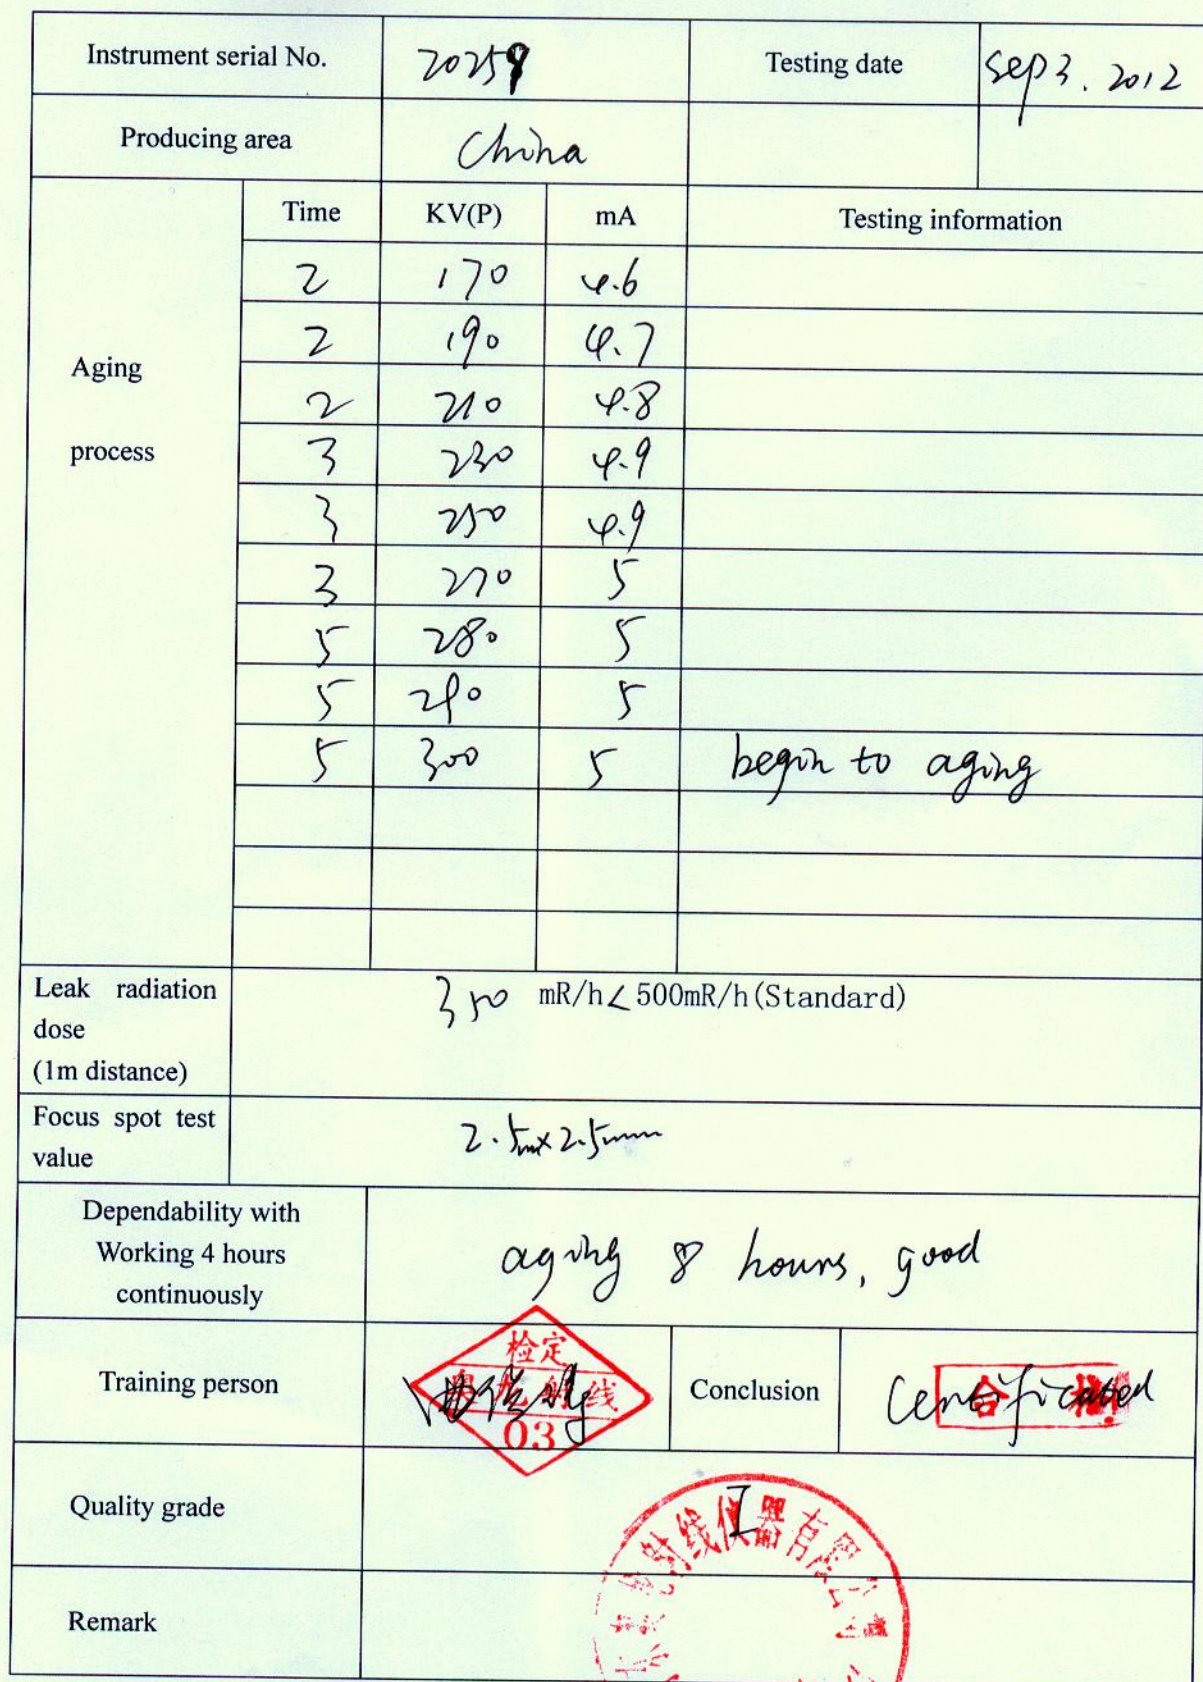 Instrument serial No. 20259 Testing date sep 3. 2012
Producing area China
Aging process
Time KV(P) mA Testing information
2 170 4.6
2 190 4.7
2 210 4.8
3 230 4.9
3 250 4.9
3 270 5
5 280 5
5 290 5
5 300 5 begin to aging
Leak radiation dose (1m distance) 350 mR/h<500mR/h(Standard)
Focus spot test value 2.5mm×2.5mm
Dependability with
Working 4 hours
continuously
aging 8 hours, good
Training person
检定
射线
03
Conclusion Certificated
合格
Quality grade I
射线仪器有限公司
Remark